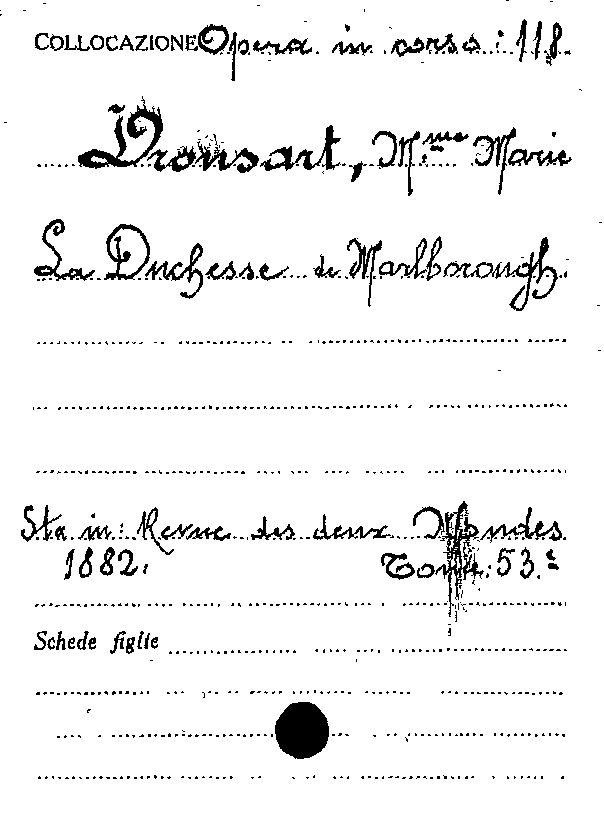 COLLOCAZIONE Opera in corso: 118.
Dronsart, Mme Marie
La Duchesse de Marlborough.
Sta in: Revue des deux Mondes
1882. Tome: 53.e
Schede figlie